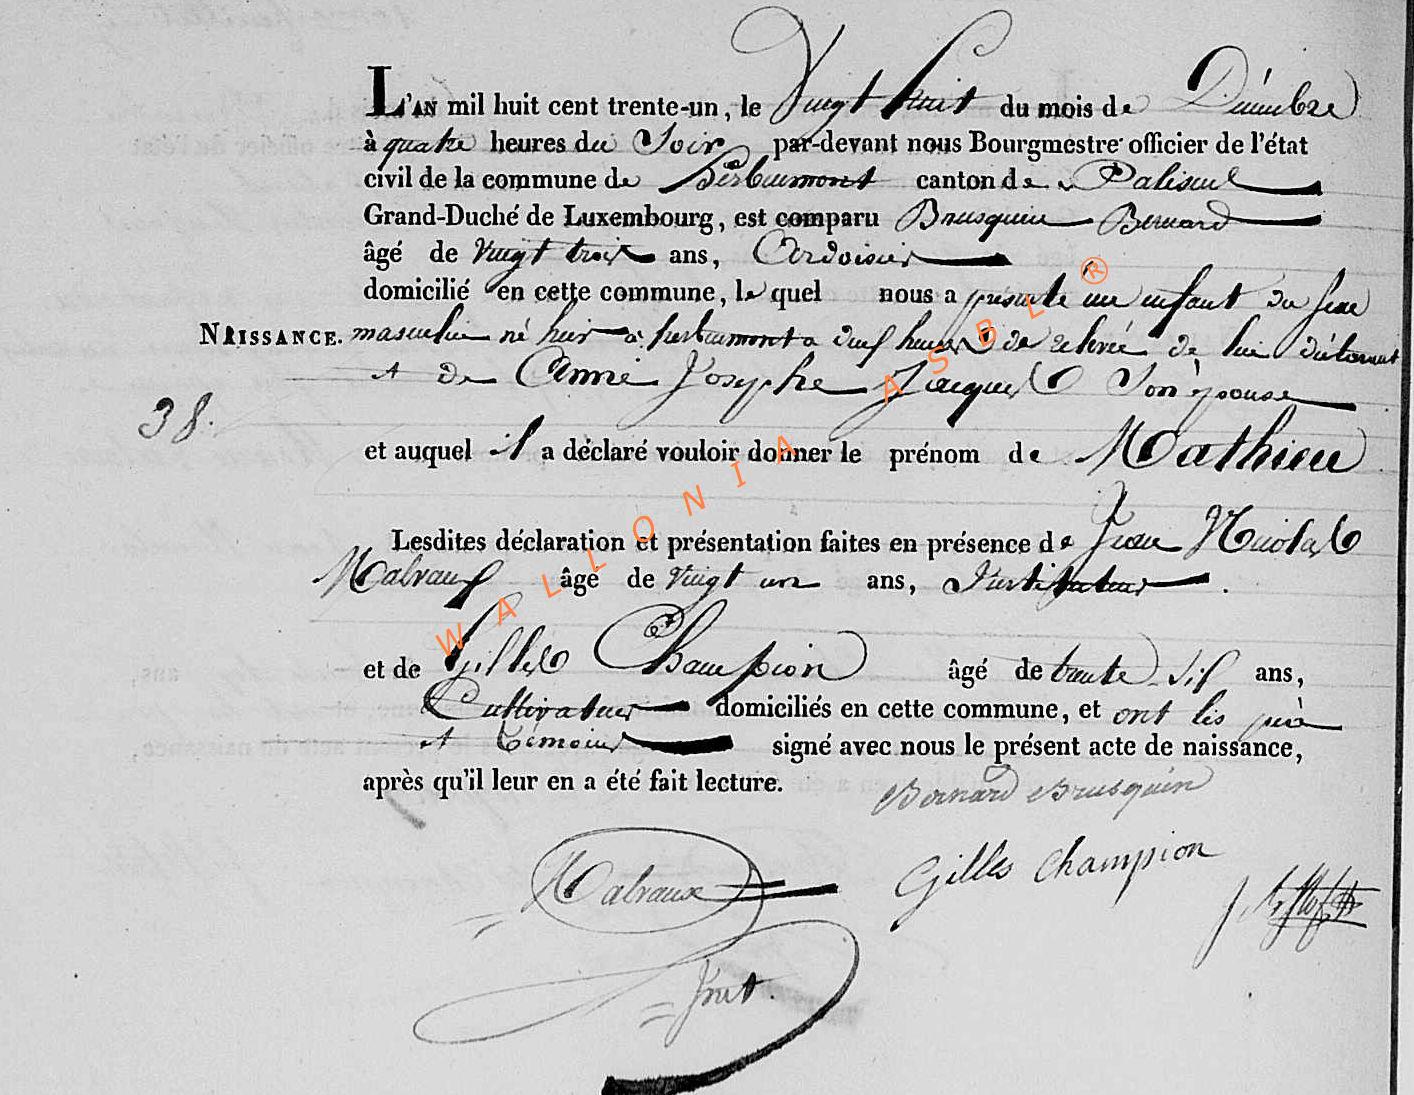 L'AN mil huit cent trente-un, le Vingt huit du mois de Décembre
à quatre heures du Soir par-devant nous Bourgmestre officier de l'état
civil de la commune de Herbeumont canton de Paliseul
Grand-Duché de Luxembourg, est comparu Brusquin Bernard
âgé de Vingt trois ans, Ardoisier
domicilié en cette commune, le quel nous a présenté un enfant du sexe
NAISSANCE. masculin né hier à herbeumont a neuf heures de relevée de lui déclarant
38. et de Anne Josephe Jacques Son épouse
et auquel il a déclaré vouloir donner le prénom de Mathieu
Lesdites déclaration et présentation faites en présence de Jean Nicolas
Malvaux âgé de Vingt un ans, Instituteur.
et de Gilles Champion âgé de trente Six ans,
Cultivateur domiciliés en cette commune, et ont les père
et témoins signé avec nous le présent acte de naissance,
après qu'il leur en a été fait lecture.
Bernard Brusquin
Malvaux Gilles Champion
Inst.
WALLONIA ASBL ®